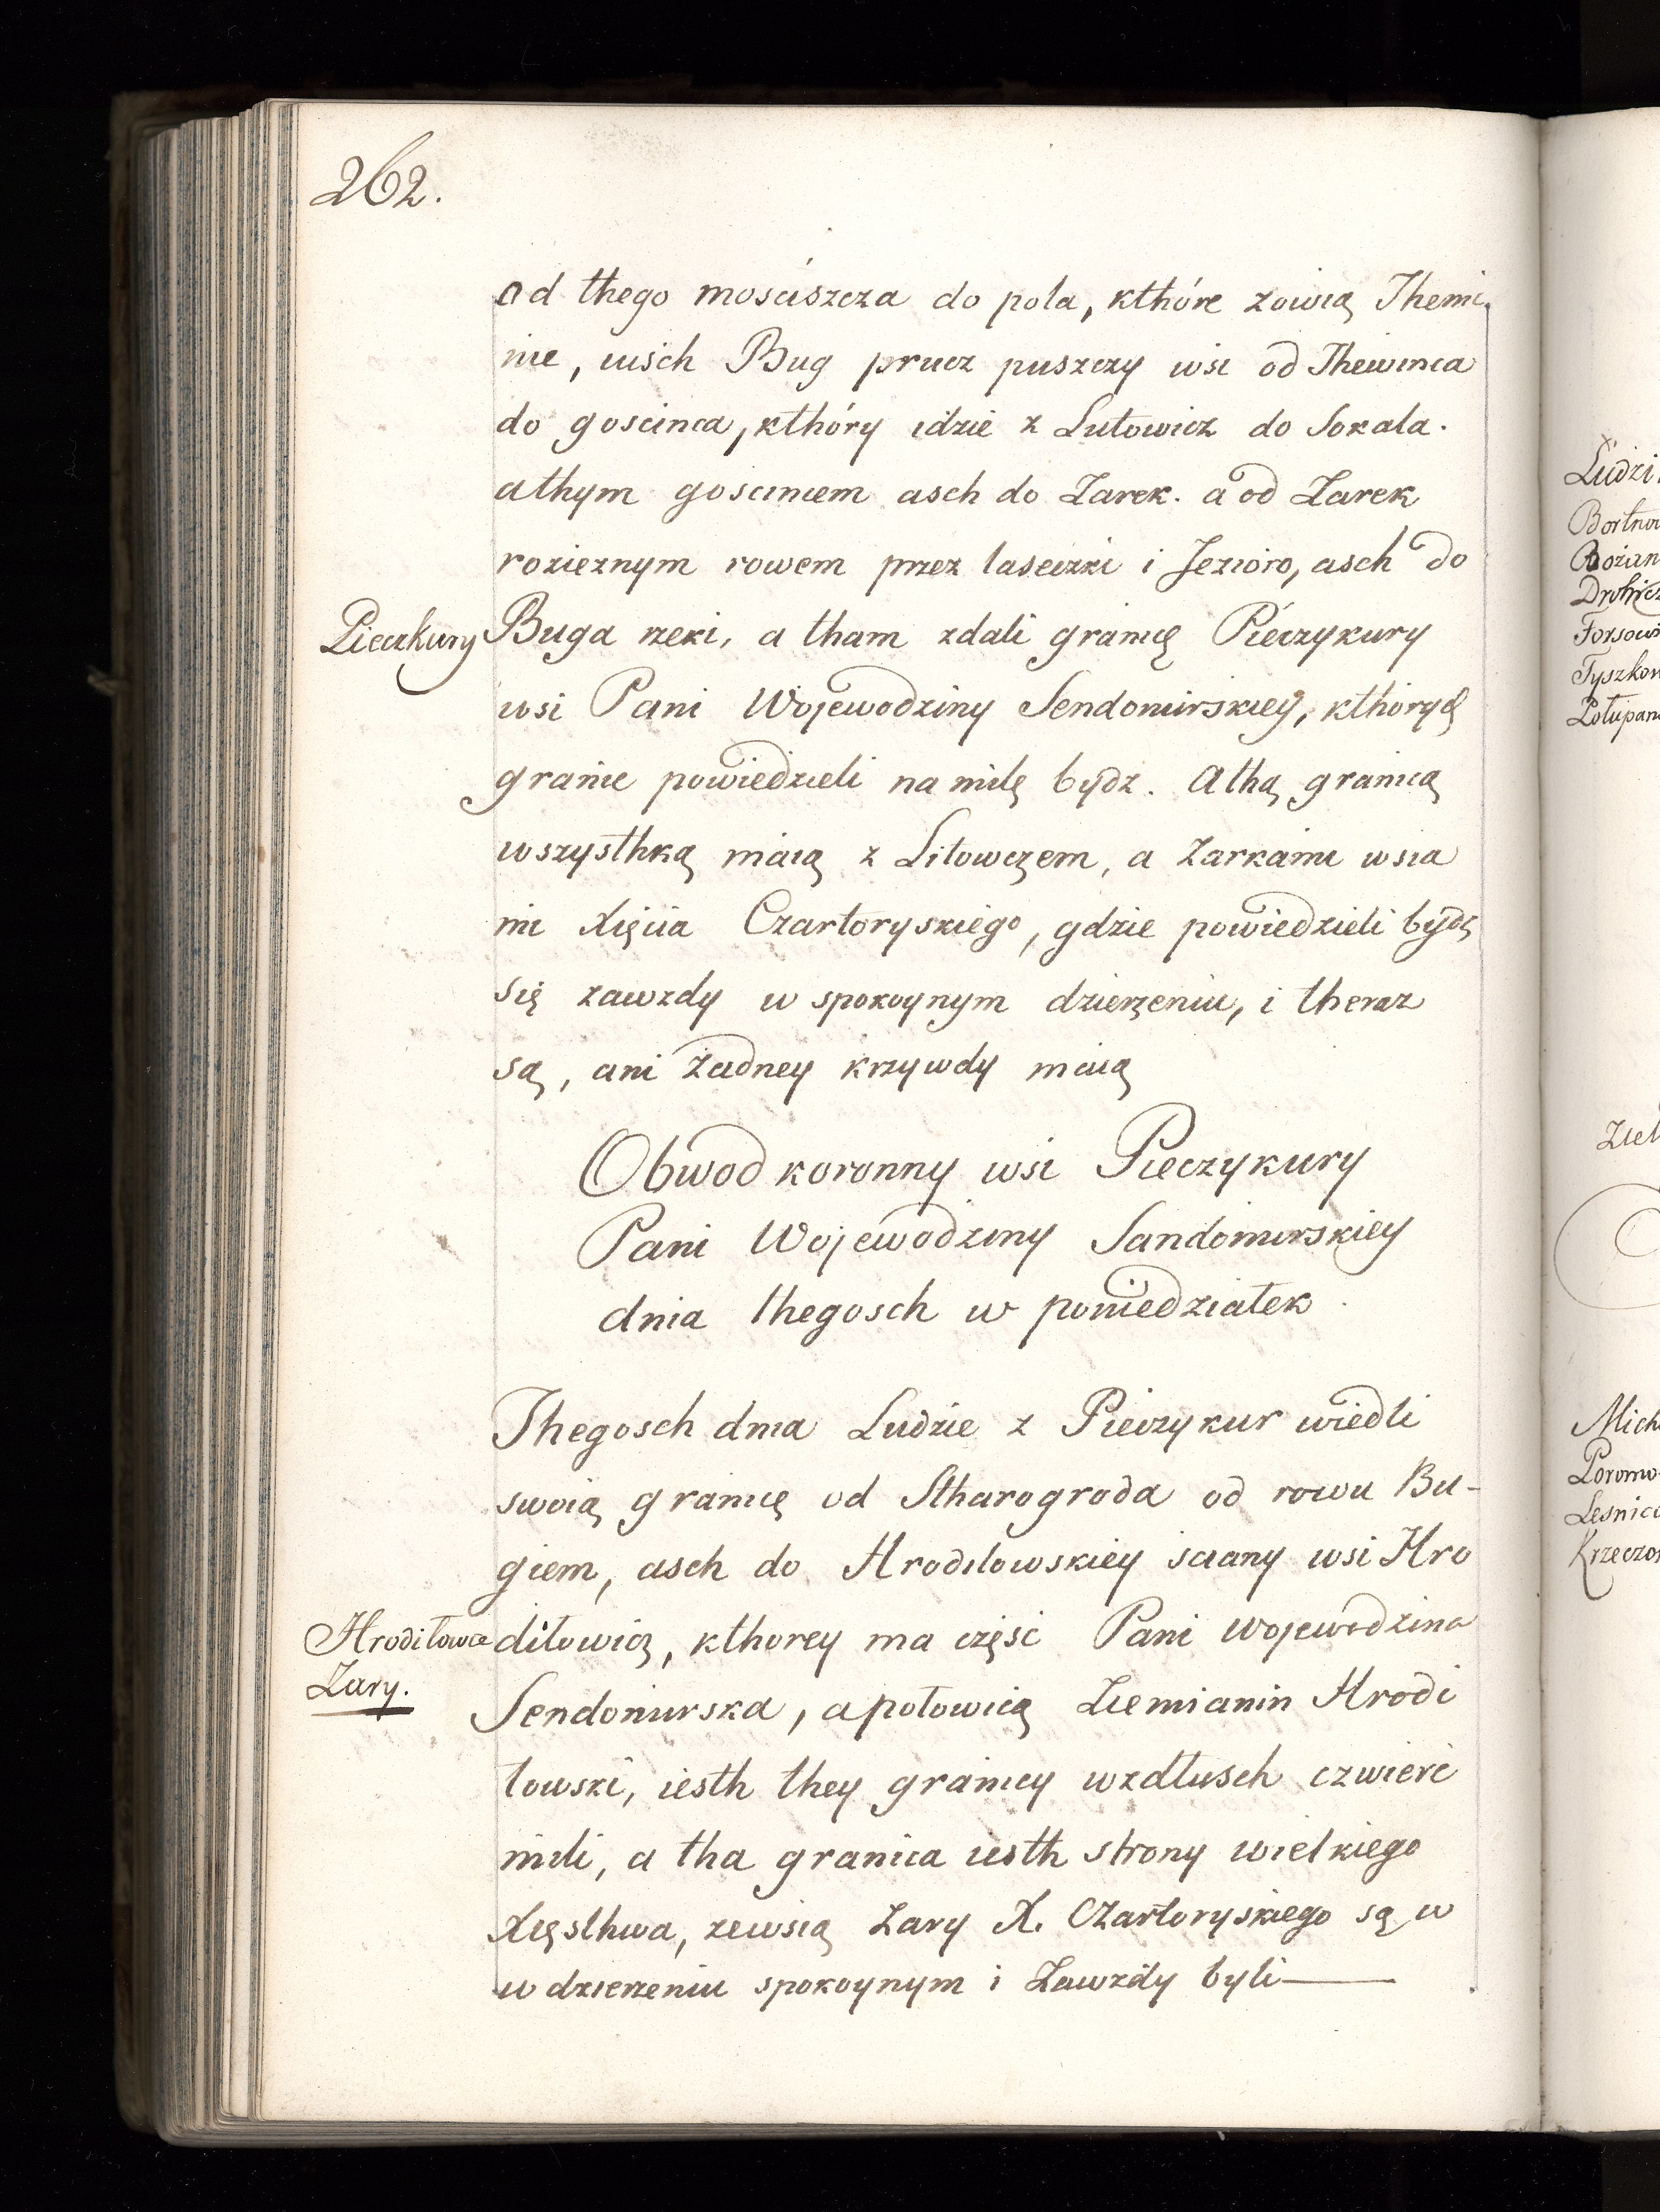 262.
od thego mościszcza do pola, kthóre zowią Themi
nie, usch Bug prucz puszczy wsi od Thewinca
do goscinca, kthóry idzie z Lutowicz do Sokala.
athym goscincem asch do Zarek. a od Zarek
rozieznym rowem przez laseczki i Jezioro, asch do
Pieczkury
Buga rzeki, a tham zdali granicę Pieczykury
wsi Pani Wojewodziny Sendomirskiey, kthoryę
granic powiedzieli na milę bydz. A thą granicą
wszysthką maią z Litowczem, a Zarkami wsia
mi Xięcia Czartoryskiego, gdzie powiedzieli bydz
się zawzdy w spokoynym dzierzeniu, i theraz
są, ani żadney krzywdy maią
Obwod koronny wsi Pieczykury
Pani Wojewodziny Sandomirskiey
dnia thegosch w poniedziałek.
Thegosch dnia Ludzie z Pieczykur wiedli
swoią granicę od Stharogroda od rowu Bu-
giem, asch do Hrodiłowskiey sciany wsi Hro
Hrodiłowce
diłowicz, kthorey ma część Pani Wojewodzina
Zary.
Sendomirska, a połowicą Ziemianin Hrodi
łowski, iesth they granicy wzdłusch czwierć
mili, a tha granica iesth strony wielkiego
Xięsthwa, zewsią Zary X. Czartoryskiego są w
w dzierzeniu spokoynym i Zawzdy byli—
Ludzi
Drohicz
Mich
Krzeczo